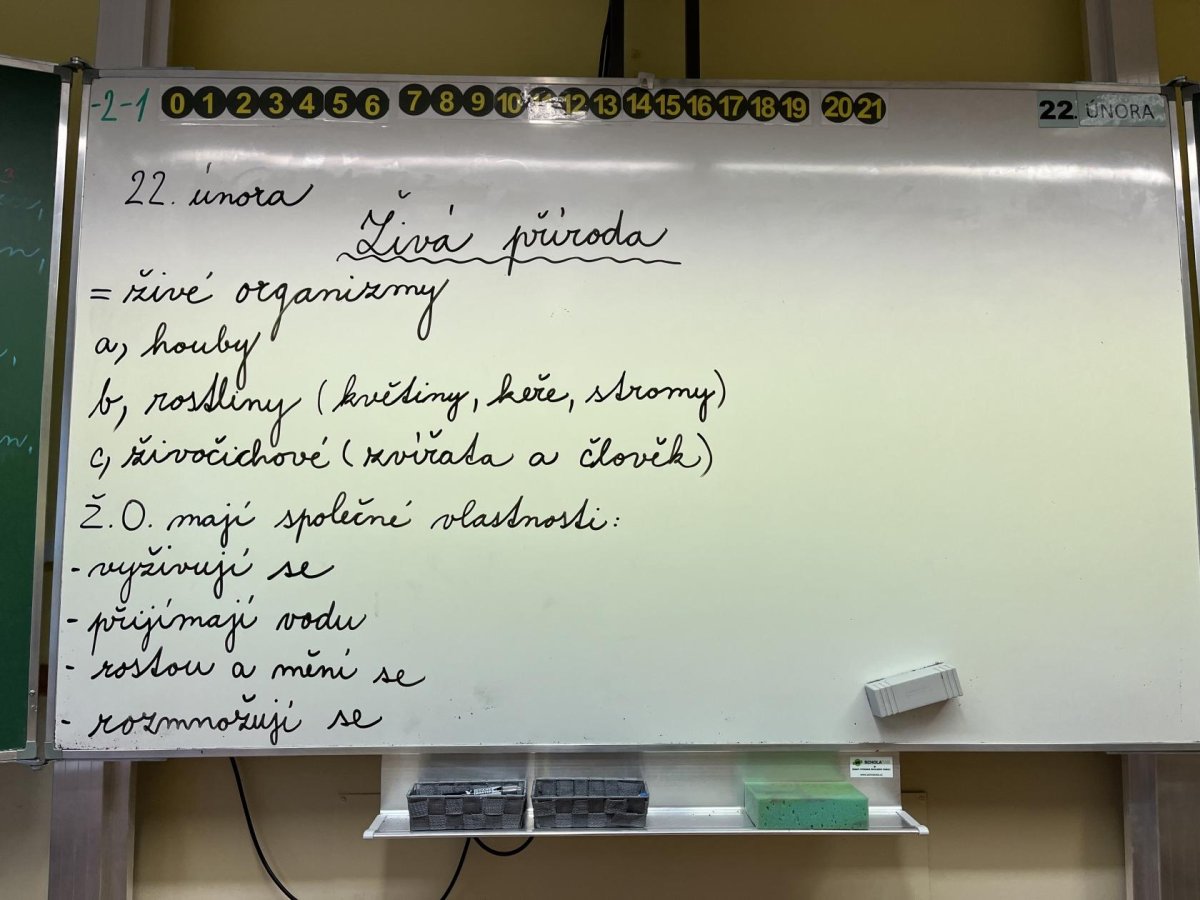 -2-1 0 1 2 3 4 5 6 7 8 9 10 11 12 13 14 15 16 17 18 19 20 21
22. ÚNORA
22. února
Živá příroda
= živé organizmy
a, houby
b, rostliny (květiny, keře, stromy)
c, živočichové (zvířata a člověk)
Ž.O. mají společné vlastnosti:
- vyživují se
- přijímají vodu
- rostou a mění se
- rozmnožují se
SCHOLA